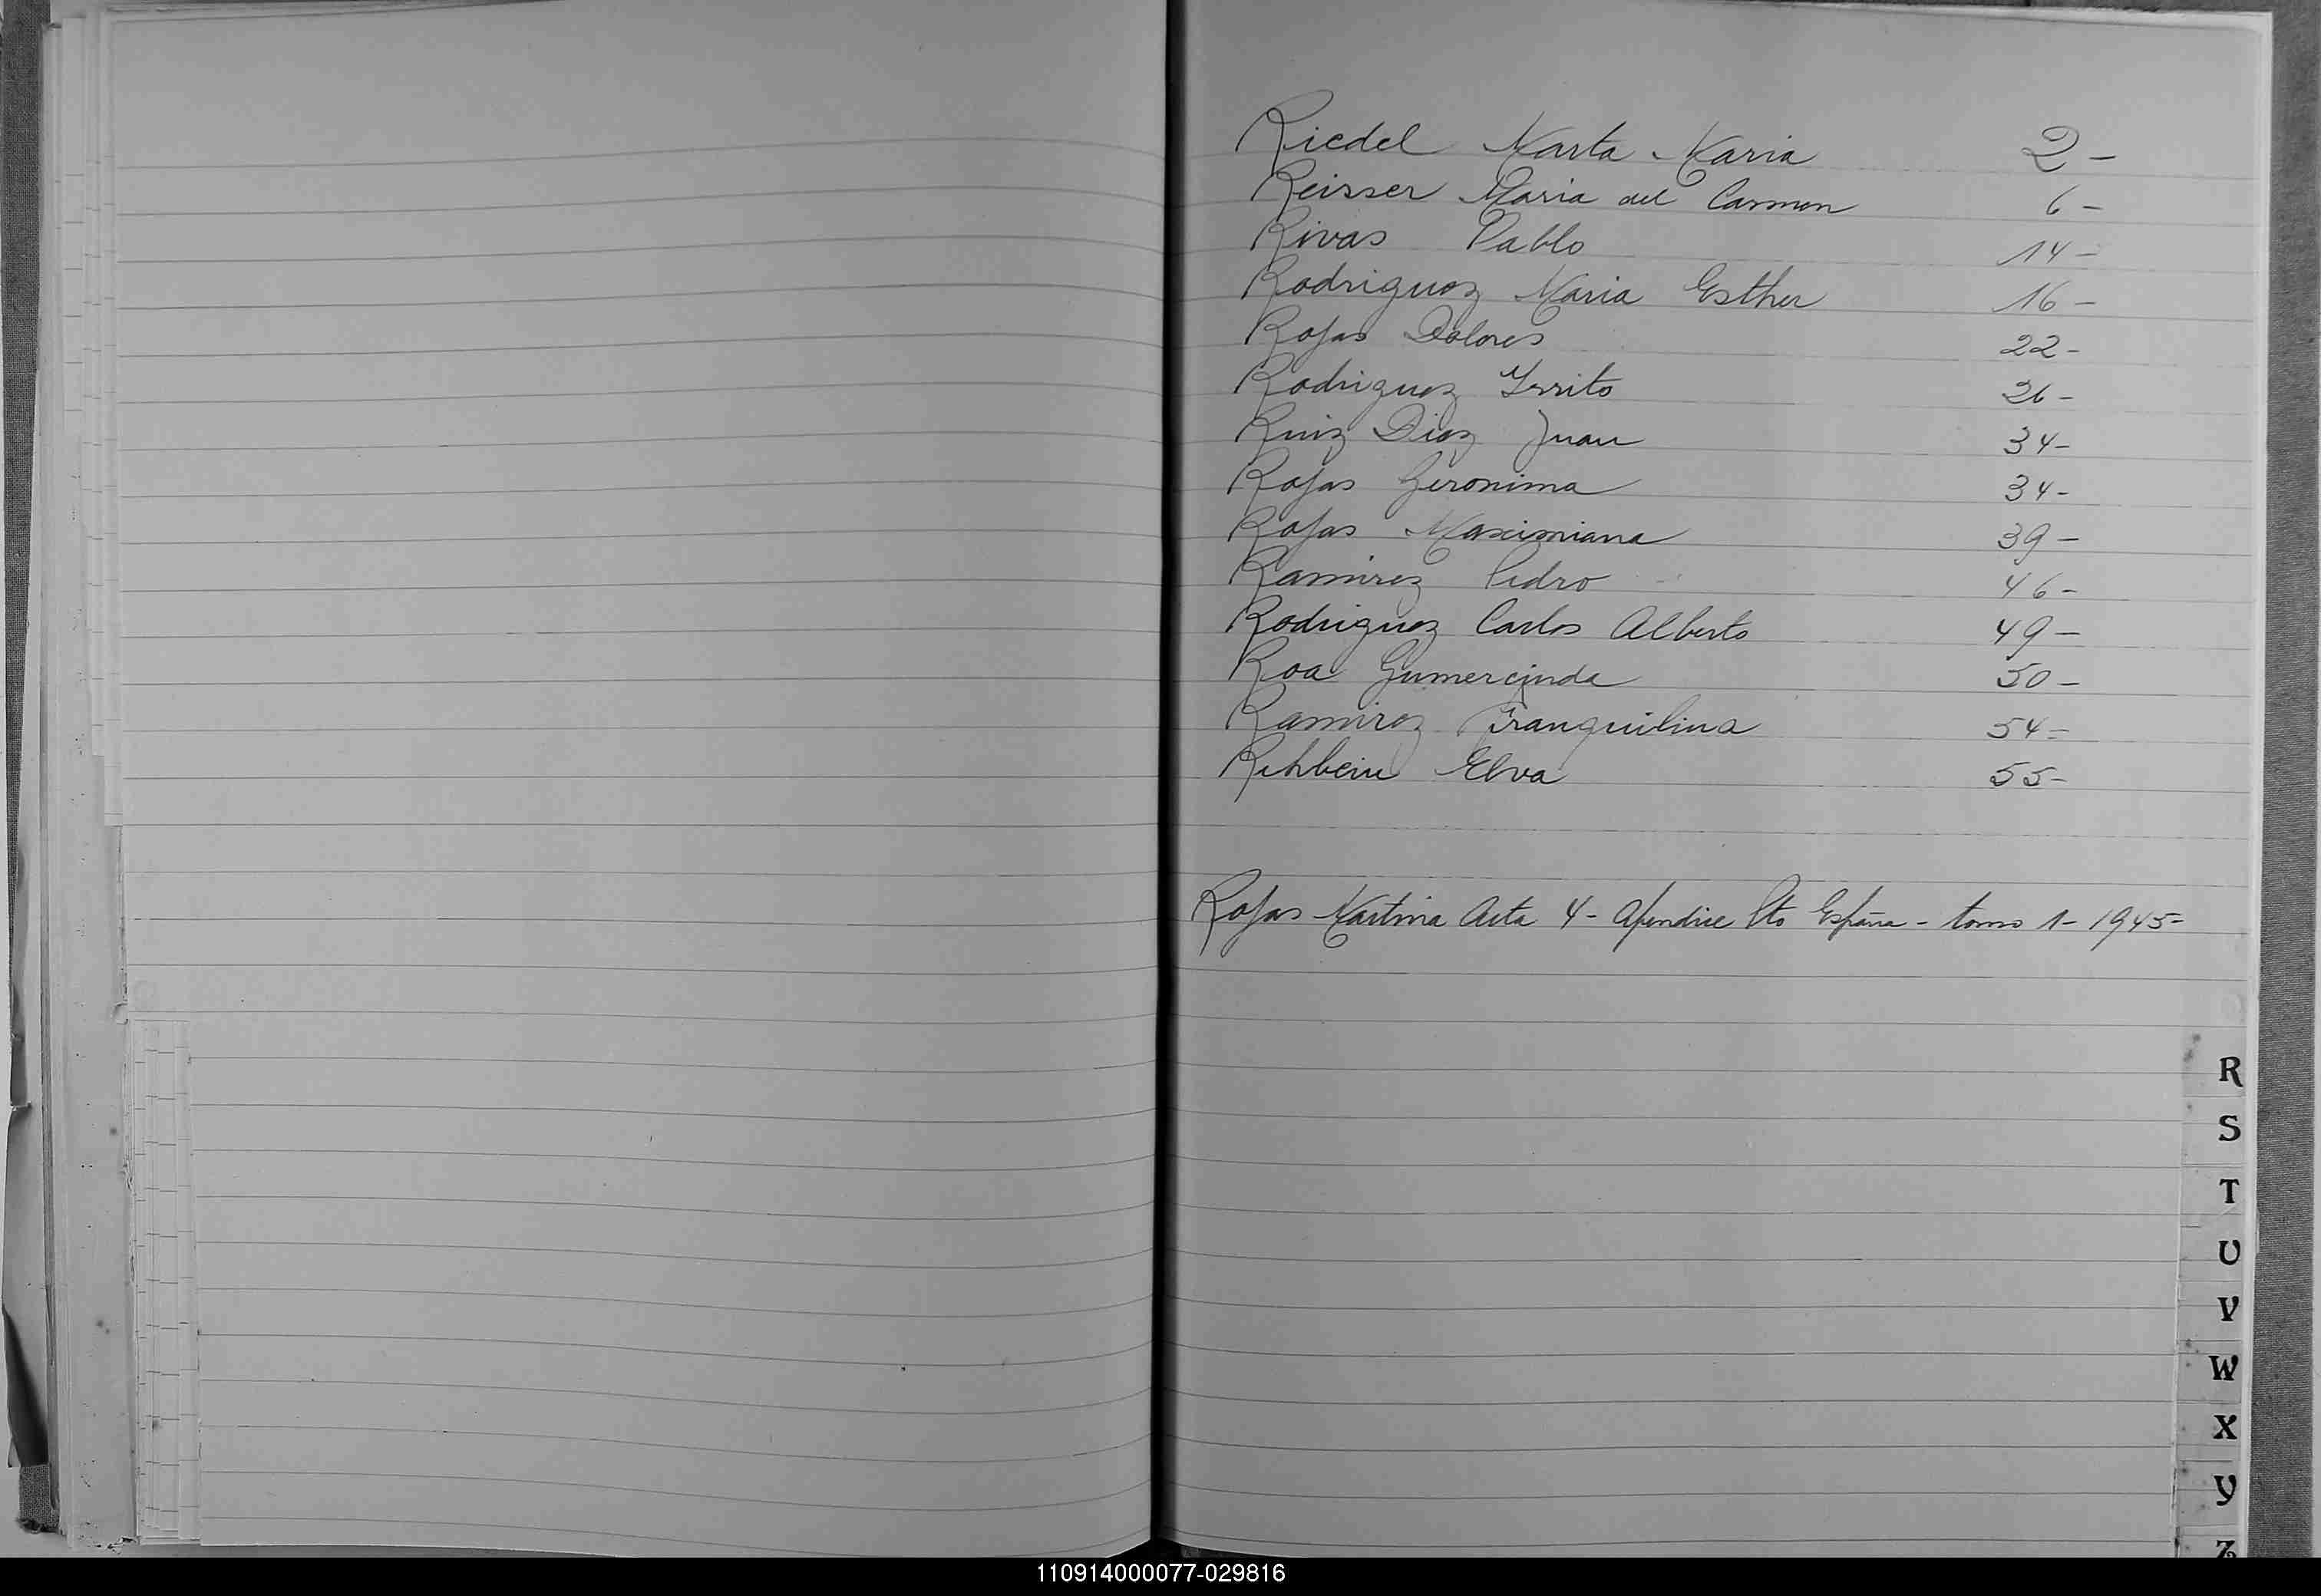 Riedel Marta Maria 2-
Reisser Maria del Carmen 6-
Rivas Pablo 14-
Rodriguez Maria Esther 16-
Rojas Dolores 22-
Rodriguez 26-
Ruiz Diaz Juan 34-
Rojas Geronima 34-
Rojas Maximiana 39-
Ramirez Pedro 46-
Rodriguez Carlos Alberto 49-
Roa Gumercinda 50-
Ramirez Tranquilina 54-
Rehbein Elva 55-
Rojas Martina Acta 4- Apendice Pto España - tomo 1- 1945-
R
S
T
U
V
W
X
Y
Z
110914000077-029816